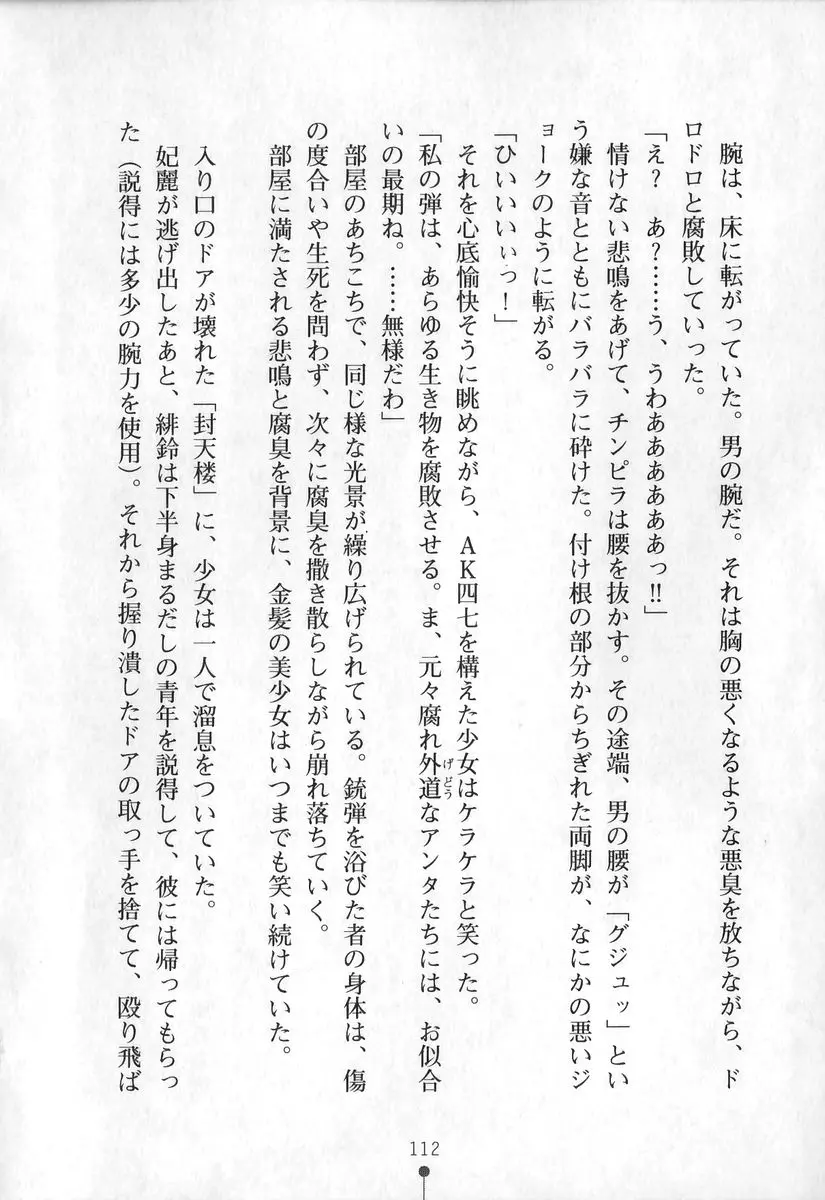 腕は、床に転がっていた。男の腕だ。それは胸の悪くなるような悪臭を放ちながら、ド
ロドロと腐敗していった。
「え？　あ？……う、うわああああああっ!!」
情けない悲鳴をあげて、チンピラは腰を抜かす。その途端、男の腰が「グジュッ」とい
う嫌な音とともにバラバラに砕けた。付け根の部分からちぎれた両脚が、なにかの悪いジ
ョークのように転がる。
「ひいいいぃっ！」
それを心底愉快そうに眺めながら、ＡＫ四七を構えた少女はケラケラと笑った。
「私の弾は、あらゆる生き物を腐敗させる。ま、元々腐れ外道なアンタたちには、お似合
げどう
いの最期ね。……無様だわ」
部屋のあちこちで、同じ様な光景が繰り広げられている。銃弾を浴びた者の身体は、傷
の度合いや生死を問わず、次々に腐臭を撒き散らしながら崩れ落ちていく。
部屋に満たされる悲鳴と腐臭を背景に、金髪の美少女はいつまでも笑い続けていた。
入り口のドアが壊れた「封天楼」に、少女は一人で溜息をついていた。
妃麗が逃げ出したあと、緋鈴は下半身まるだしの青年を説得して、彼には帰ってもらっ
た（説得には多少の腕力を使用）。それから握り潰したドアの取っ手を捨てて、殴り飛ば
112